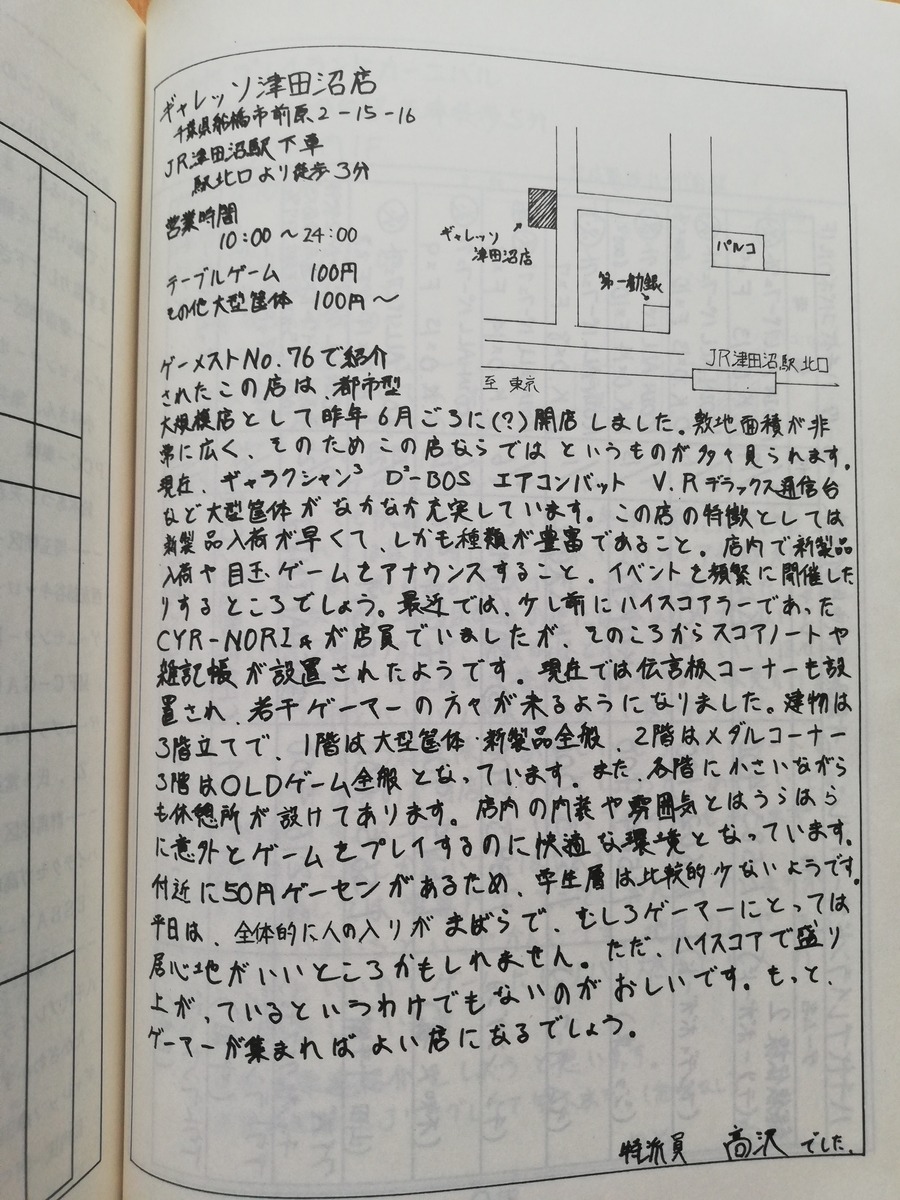 ギャレッソ津田沼店
千葉県船橋市前原2-15-16
JR津田沼駅下車
駅北口より徒歩3分
営業時間
10:00～24:00
テーブルゲーム 100円
その他大型筐体 100円～
ギャレッソ
津田沼店
第一勧銀
パルコ
JR津田沼駅北口
至 東京
ゲーメストNo.76で紹介
されたこの店は、都市型
大規模店として昨年6月ごろに(?)開店しました。敷地面積が非
常に広く、そのためこの店ならではというものが多々見られます。
現在、ギャラクシャン³ D³-BOS エアコンバット V.Rデラックス通信台
など大型筐体がなかなか充実しています。この店の特徴としては
新製品入荷が早くて、しかも種類が豊富であること。店内で新製品
入荷や目玉ゲームをアナウンスすること、イベントを頻繁に開催した
りするところでしょう。最近では、少し前にハイスコアラーであった
CYR-NORIさんが店員でいましたが、そのころからスコアノートや
雑記帳が設置されたようです。現在では伝言板コーナーも設
置され、若干ゲーマーの方々が来るようになりました。建物は
3階立てで、1階は大型筐体・新製品全般、2階はメダルコーナー
3階はOLDゲーム全般となっています。また、各階に小さいながら
も休憩所が設けてあります。店内の内装や雰囲気とはうらはら
に意外とゲームをプレイするのに快適な環境となっています。
付近に50円ゲーセンがあるため、学生層は比較的少ないようです。
平日は、全体的に人の入りがまばらで、むしろゲーマーにとっては
居心地がいいところかもしれません。ただ、ハイスコアで盛り
上がっているというわけでもないのがおしいです。もっと、
ゲーマーが集まればよい店になるでしょう。
特派員 高沢 でした。